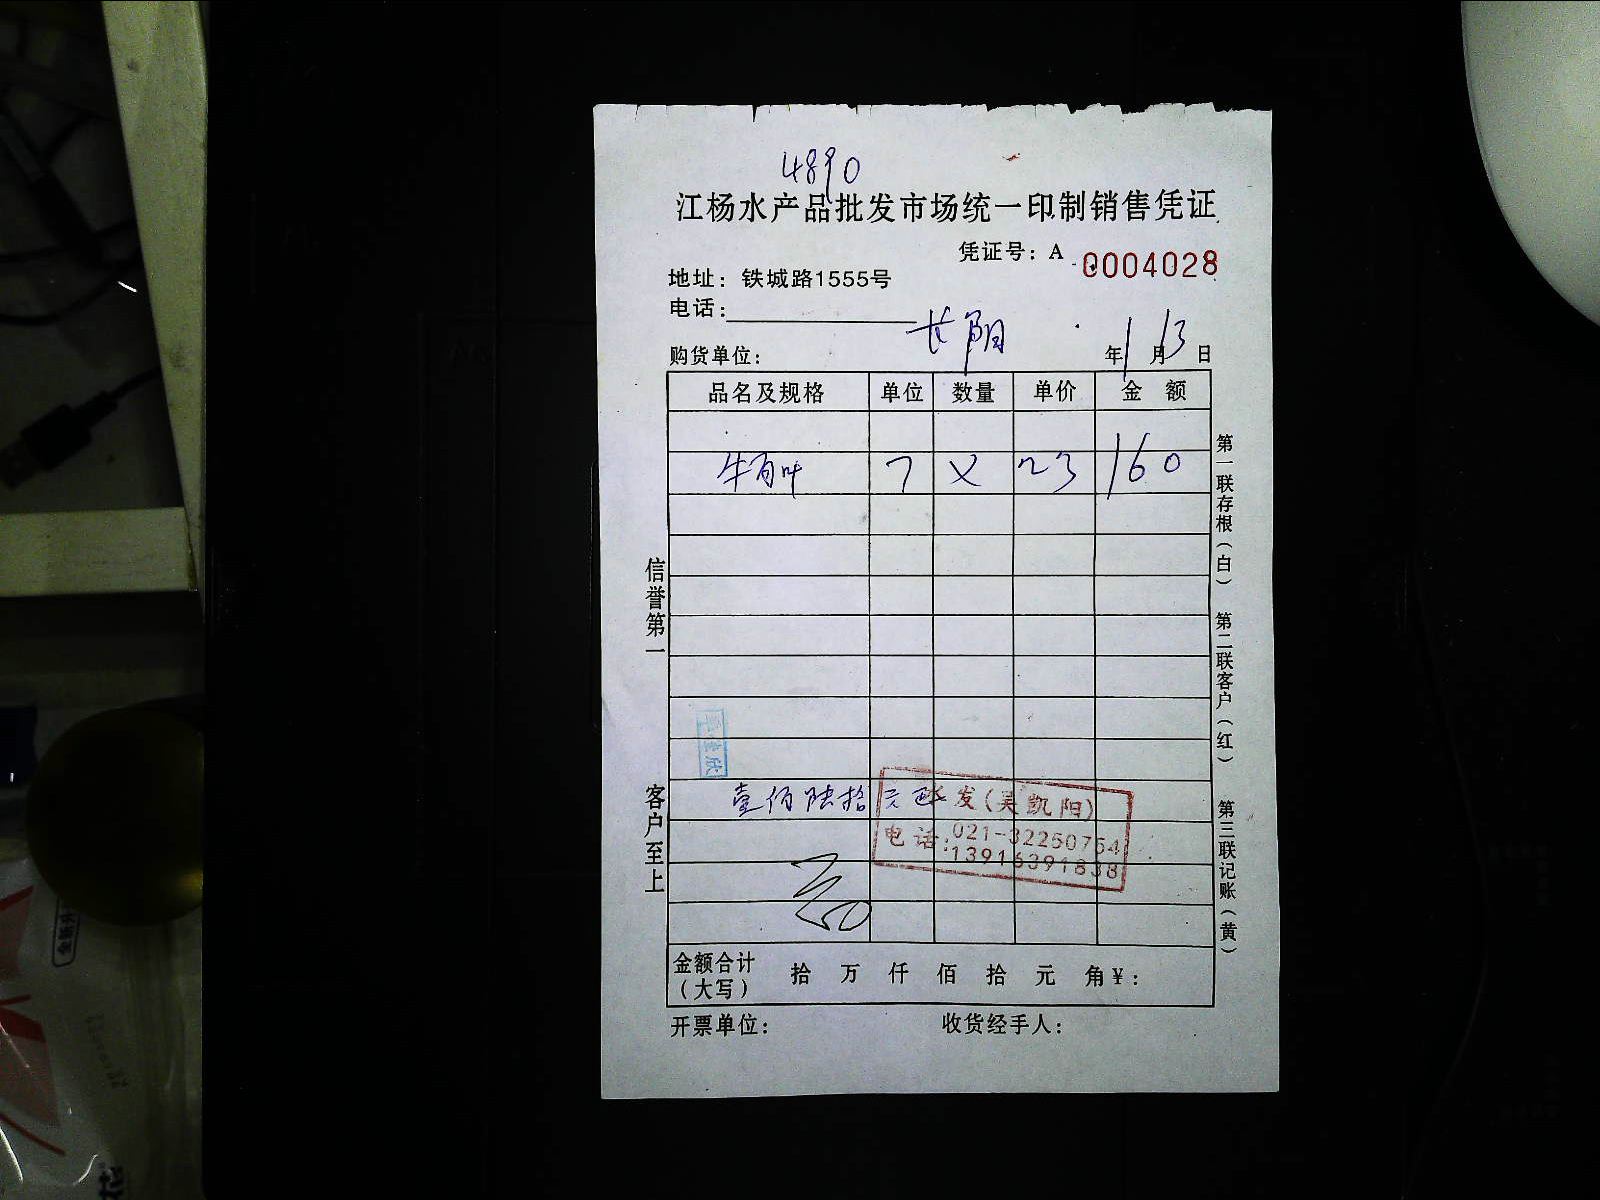 4890
江杨水产品批发市场统一印制销售凭证
凭证号：A 0004028
地址：铁城路1555号
电话：
长阳
购货单位： 年1月13日
品名及规格 单位 数量 单价 金额
牛百叶 7 × 23 160
壹佰陆拾元
发(吴凯阳)
电话:021-32250754
13916391838
金额合计（大写） 拾 万 仟 佰 拾 元 角￥：
开票单位： 收货经手人：
信誉第一
客户至上
第一联存根（白）
第二联客户（红）
第三联记账（黄）